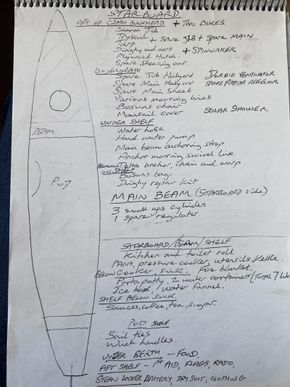 STARBOARD
AFT OF CRASH BULKHEAD + TWO BIKES.
Storm Jib
Trysail + Spare JIB + SPARE MAIN
Tarp
Dinghy and oars + SPINNAKER
Plywood Hatch.
Spare Steering oar
UNDERNEATH
Spare Jib Halyard DORAID VENTILATOR
Spare Main Halyard SPARE RADAR REFLECTOR
Spare Main Sheet
Various mooring lines
Bosuns chair SOLAR SHOWER
Mainsail cover
UNDER SHELF
Water hose
Hand water pump
Main beam anchoring strop
Anchor mooring swivel line
Delta anchor, chain and warp
ON SHELF
Bosuns bag.
Dinghy repair kit.
BEAM
POD
MAIN BEAM (STARBOARD side)
3 small gas cylinders
1 spare regulator.
STARBOARD/BEAM/SHELF
Kitchen and toilet roll
Pans, pressure cooker, utensils, kettle.
BELOW Cooker, sink. Fire blanket.
Porta potty. 2 water containers (Total 7
Ice box / water funnel.
SHELF BELOW SINK.
Sauces, coffee, tea, sugar.
POD SHELF
Sail ties
Winch handles.
UNDER BERTH - FOOD.
AFT SHELF - 1ST AID, FLAGS, RADIO,
STERN LOCKER BATTERY, DRY SUIT, CLOTHING